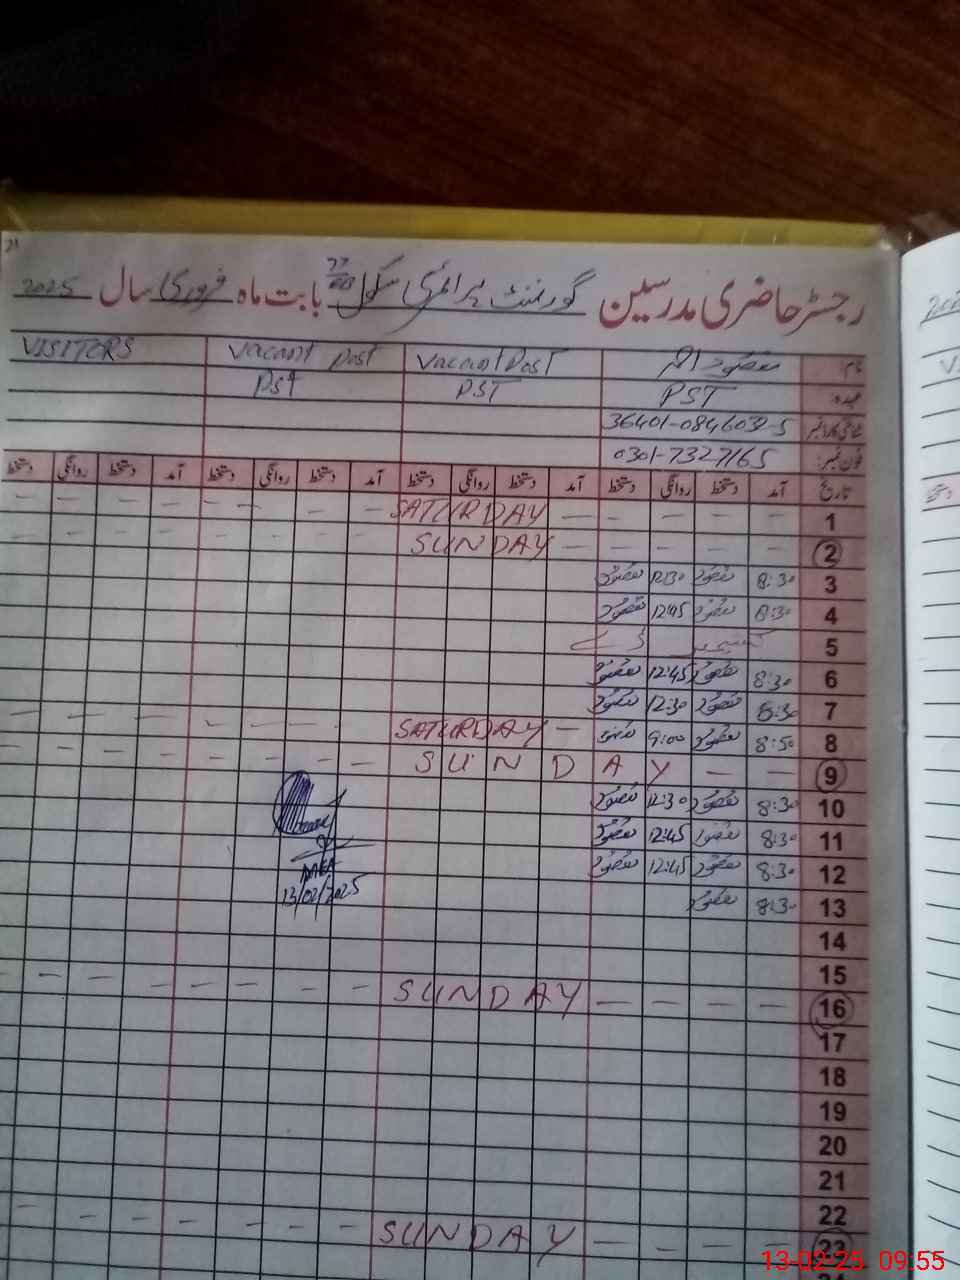 21
رجسٹر حاضری مدرسین گورنمنٹ پرائمری سکول 77/EB بابت ماہ فروری سال 2025
نام: مقصود احمد Vacant Post Vacant Post VISITORS
عہدہ: PST PST PST
شناختی کارڈ نمبر: 36401-0846032-5
فون نمبر: 0301-7327165
تاریخ آمد دستخط روانگی دستخط آمد دستخط روانگی دستخط آمد دستخط روانگی دستخط آمد دستخط روانگی دستخط
1 — — — — — SATURDAY — — — — — — —
2 — — — — — SUNDAY — — — — — — —
3 8:30 مقصود 12:30 مقصود
4 8:30 مقصود 12:45 مقصود
5 کشمیر ڈے
6 8:30 مقصود 12:45 مقصود
7 8:30 مقصود 12:30 مقصود
8 8:50 مقصود 9:00 مقصود — SATURDAY — — — — — — —
9 — — SUNDAY — — — — — — —
10 8:30 مقصود 12:30 مقصود
11 8:30 مقصود 12:45 مقصود
12 8:30 مقصود 12:45 مقصود
13 8:30 مقصود
MEA
13/02/2025
14
15
16 — — — — SUNDAY — — — — — — —
17
18
19
20
21
22
23 — — — — SUNDAY — — — — — — —
13-02-25 09:55